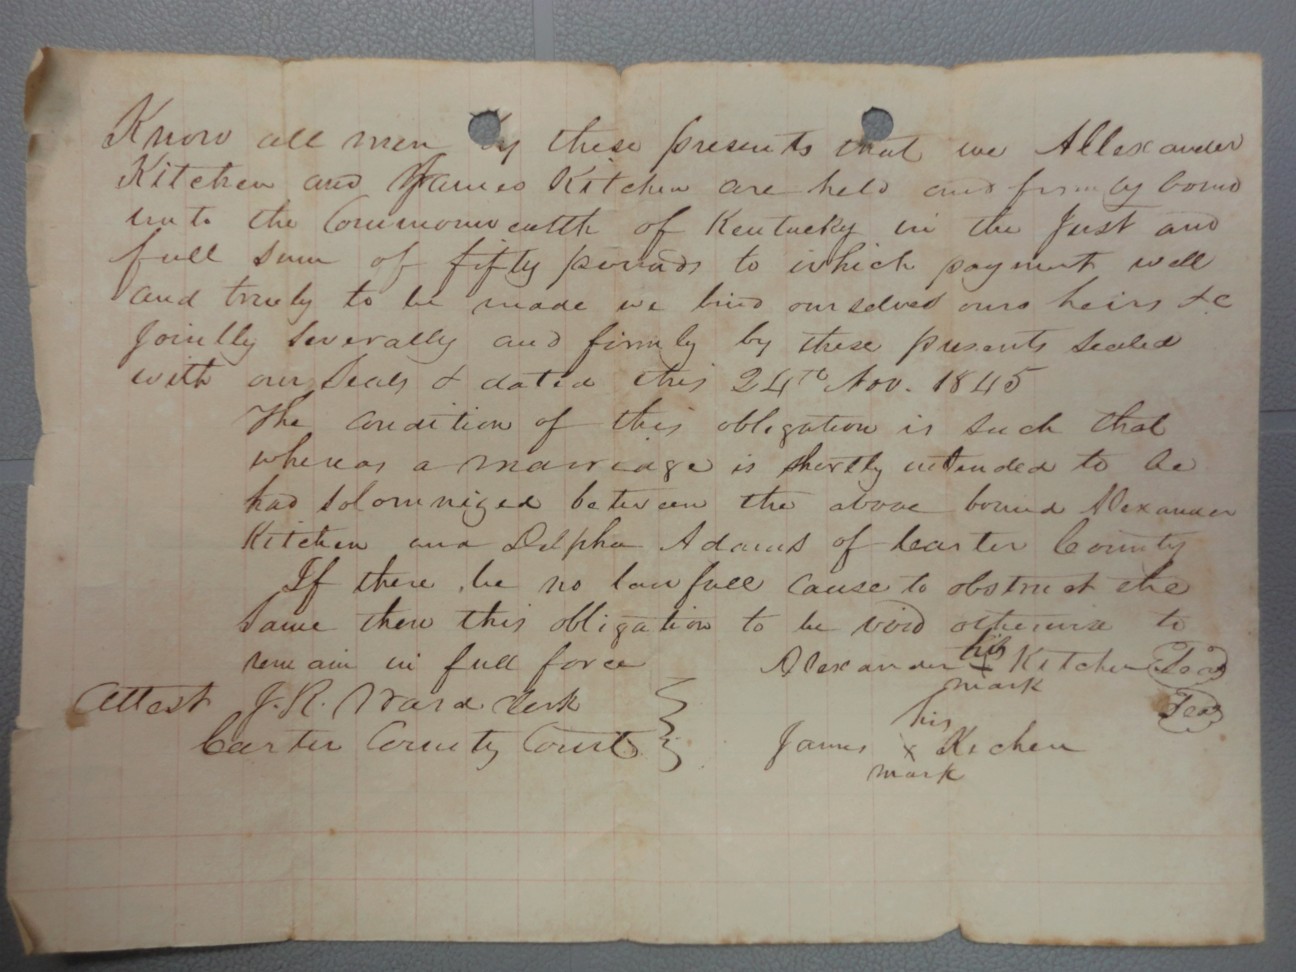 Know all men by these presents that we Allexander
Kitchen and James Kitchen are held and firmly bound
unto the Commonwealth of Kentucky in the Just and
full sum of fifty pounds to which payment well
and truely to be made we bind ourselves ours heirs &c
Jointly severally and firmly by these presents sealed
with our Seals & dated this 24th Nov. 1845
The condition of this obligation is such that
whereas a marriage is shortly intended to be
had solomnized between the above bound Alexander
Kitchen and Delpha Adams of Carter County
If there be no lawfull cause to obstruct the
same then this obligation to be void otherwise to
remain in full force Alexander his x mark Kitchen Seal
Attest J. R. Ward Clerk Seal
Carter County Court James his x mark Kichen